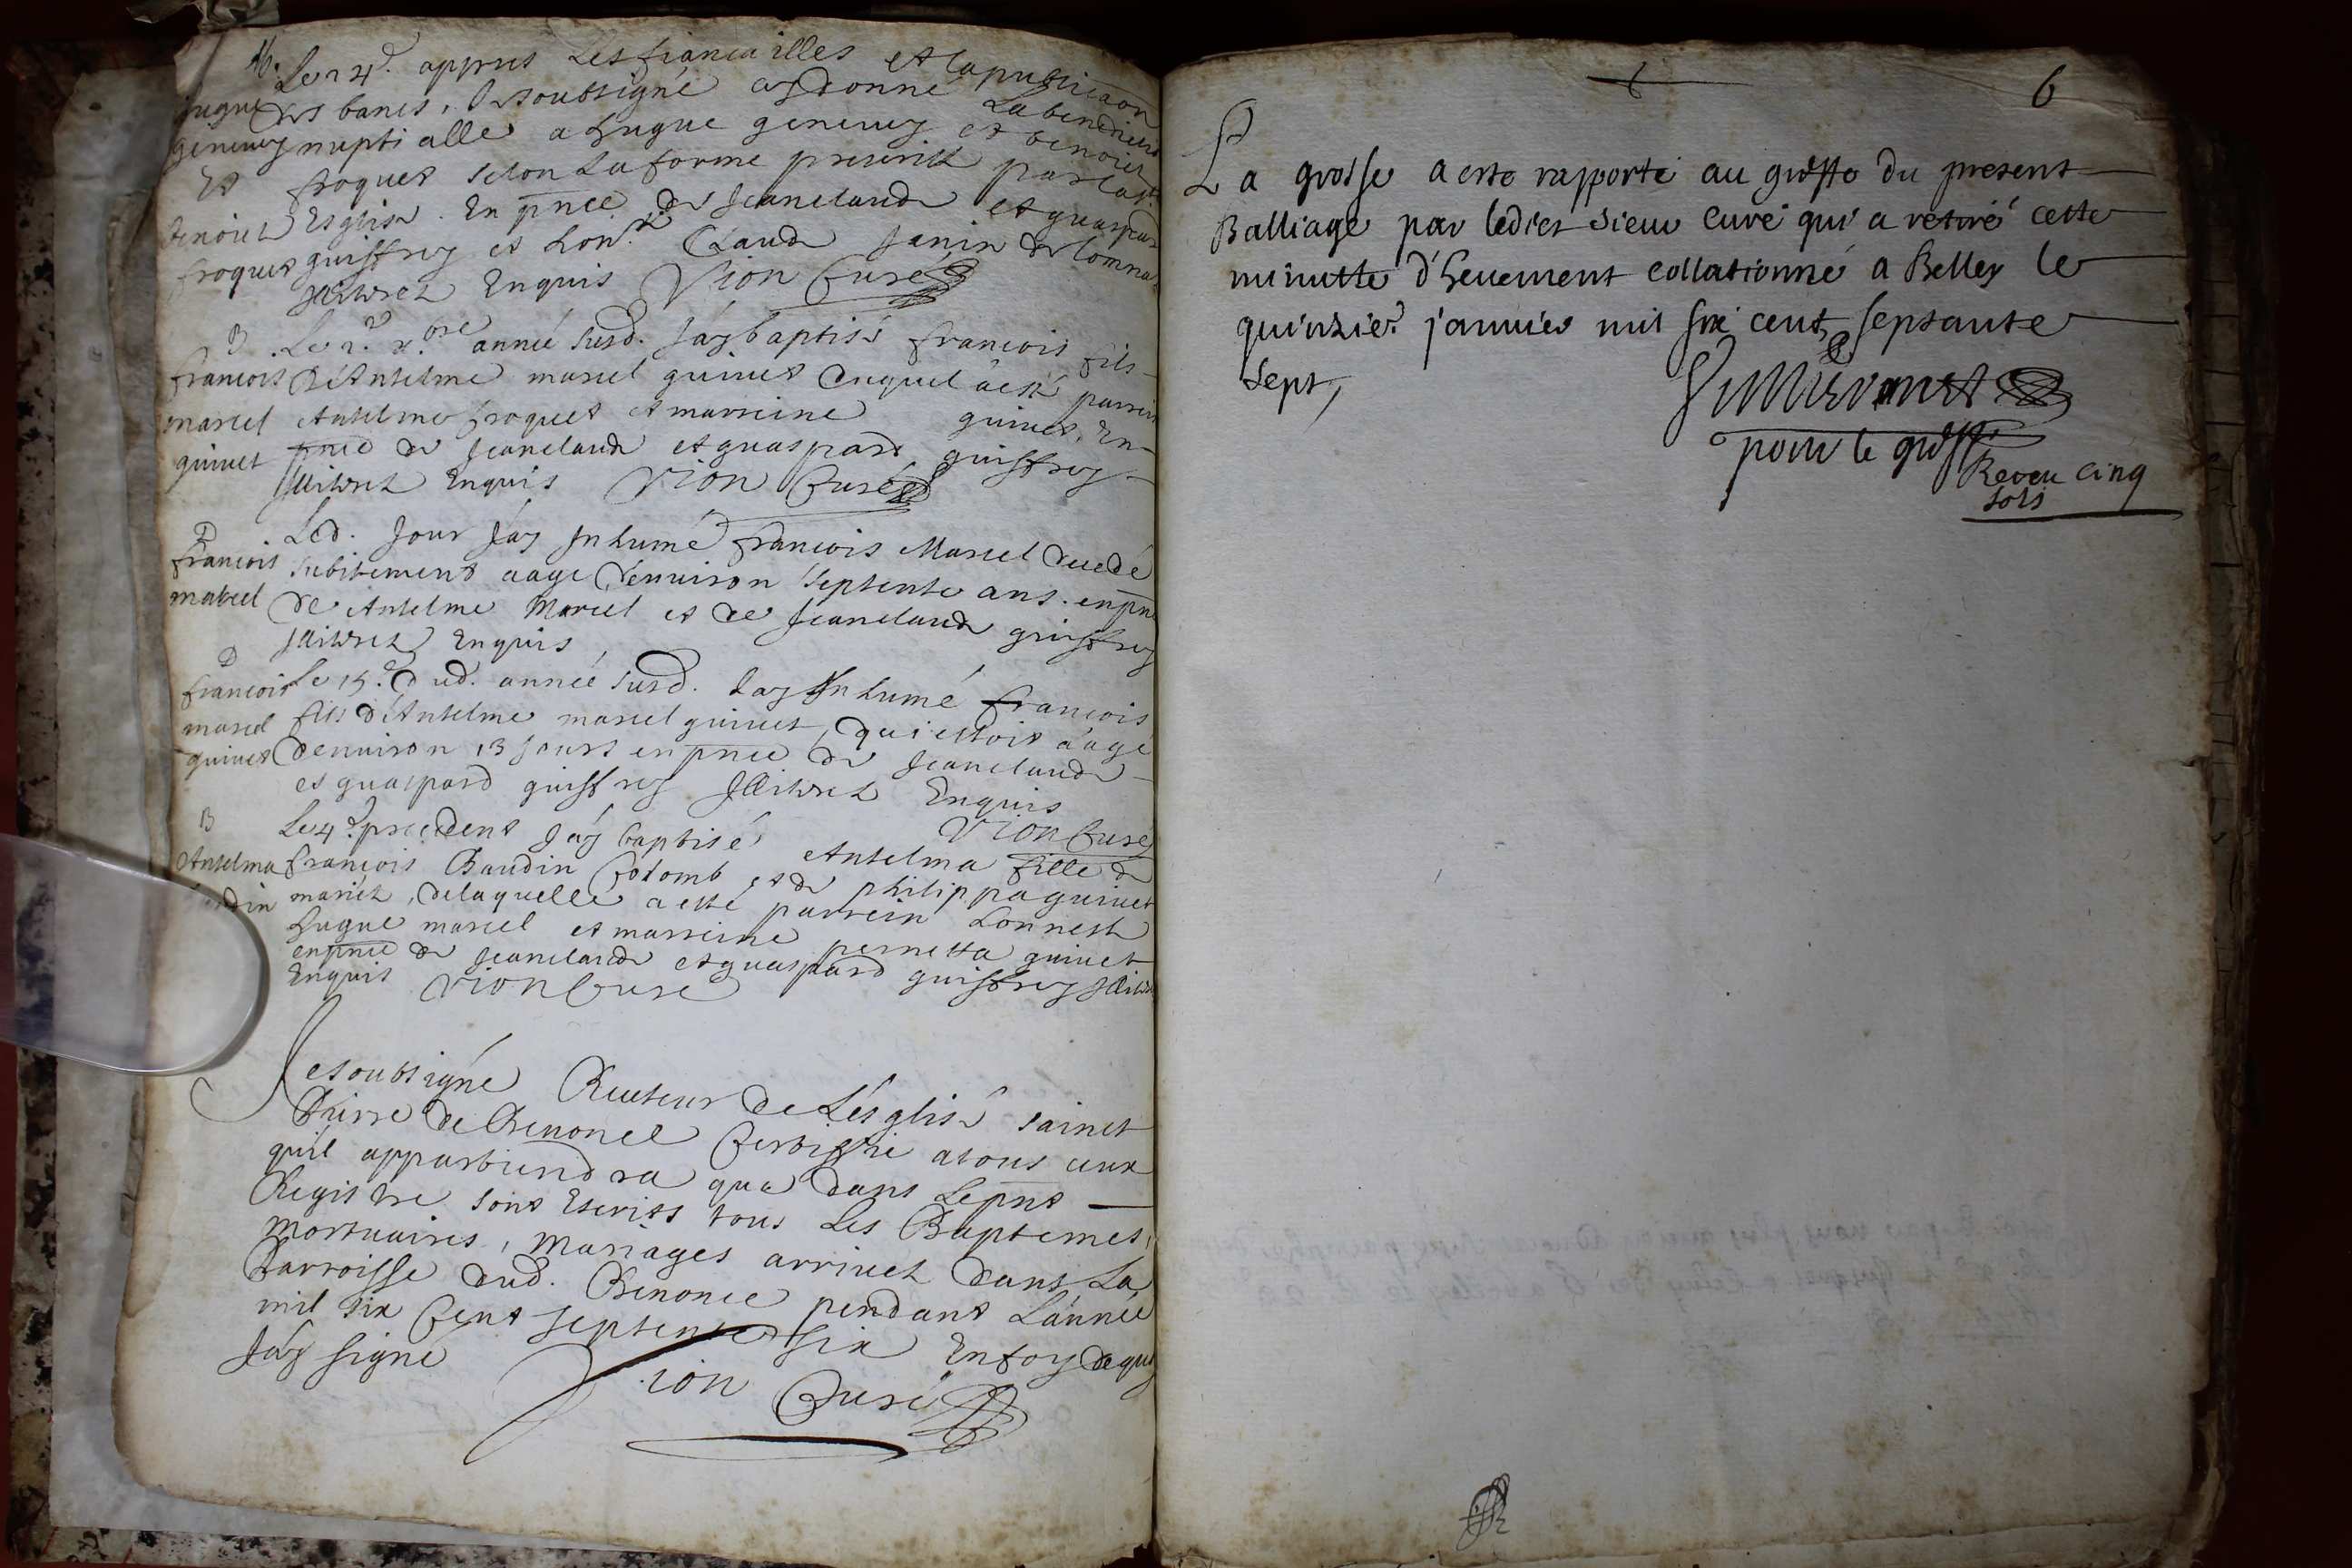 M.
Le 24e. appres Les fiancailles et la publicaon
hugue
des bancs, Je soubsigné ay donné La benedict
geneuey
nuptialle a hugue geneuey et benoict
Et
froquet selon La forme prescritte par La ste
benoict
Esglise. En pnce de Jeanclaude et guaspard
froquet
guiffrey et hon.ble Claude Janin de lomna
Illitrez Enquis Vion Curé
B
Le 2e xbre année susd. J'ay baptisé francois fils
francois
d'Antelme marcel guinet duquel a esté parrein
marcel
Antelme froquet et marreine guinet, En
guinet
pnce de Jeanclaude et guaspard guiffrey
Illitrez Enquis Vion Curé
D
Led. Jour J'ay Inhumé francois Marcel decedé
francois
subitement aagé d'enuiron septente ans. en pnce
marcel
de Antelme Marcel et de Jeanclaude guiffrey
Illitrez Enquis
D
Le 15e dud. année susd. J'ay Inhumé francois
francois
marcel
fils d'Antelme marcel guinet, qui estoit aagé
guinet
d'enuiron 13 jours en pnce de Jeanclaude
et guaspard guiffrey Illitrez Enquis
Vion Curé
B
Le 4e precedent J'ay baptisé Antelma fille de
Antelma
francois Baudin Colomb et de philippa guinet
mariéz, de laquelle a esté parrein honneste
hugue marcel et marreine pernetta guinet
en pnce de Jeanclaude et guaspard guiffrey Illit
Enquis Vion Curé
Je soubsigné Recteur de L'ésglise sainct
Pierre de Chenonel Certiffie a tous ceux
qu'il appartiendra que dans Le pnt
Registre sont Escrits tous Les Baptemes,
mortuaires, Mariages arriuez dans La
Parroisse dud. Chenonel pendant L'année
mil six Cent septente six En foy de quoy
J'ay signé
Vion Curé
6
La grosse a este rapporté au greffe du present
Balliage par ledict sieur curé qui a retiré cette
minutte d'heuement collationné a Belley le
quinzie.e januier mil six cent septante
sept,
pour le greffe
Receu cinq
sols